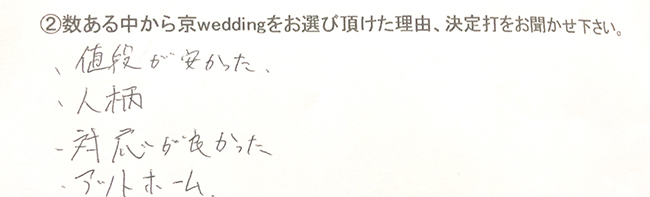 ②数ある中から京weddingをお選び頂けた理由、決定打をお聞かせ下さい。
、値段が安かった、
・人柄
- 対応が良かった
・アットホーム.